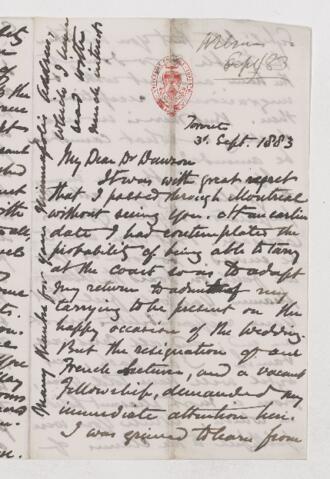 Wilson
Sept/83
Toronto
3d. Sept. 1883
My Dear Dr Dawson
It was with great regret
that I passed through Montreal
without seeing you. At an earlier
date I had contemplated the
probability of being able to tarry
at the coast so as to adapt
my return to admit of my
tarrying to be present on the
happy occasion of the wedding.
But the resignation of our
French Lecturer, and a vacant
Fellowship, demanded my
immediate attention here.
I was grieved to learn from
Many thanks for your Minneapolis address,
which I have
read with
much interest